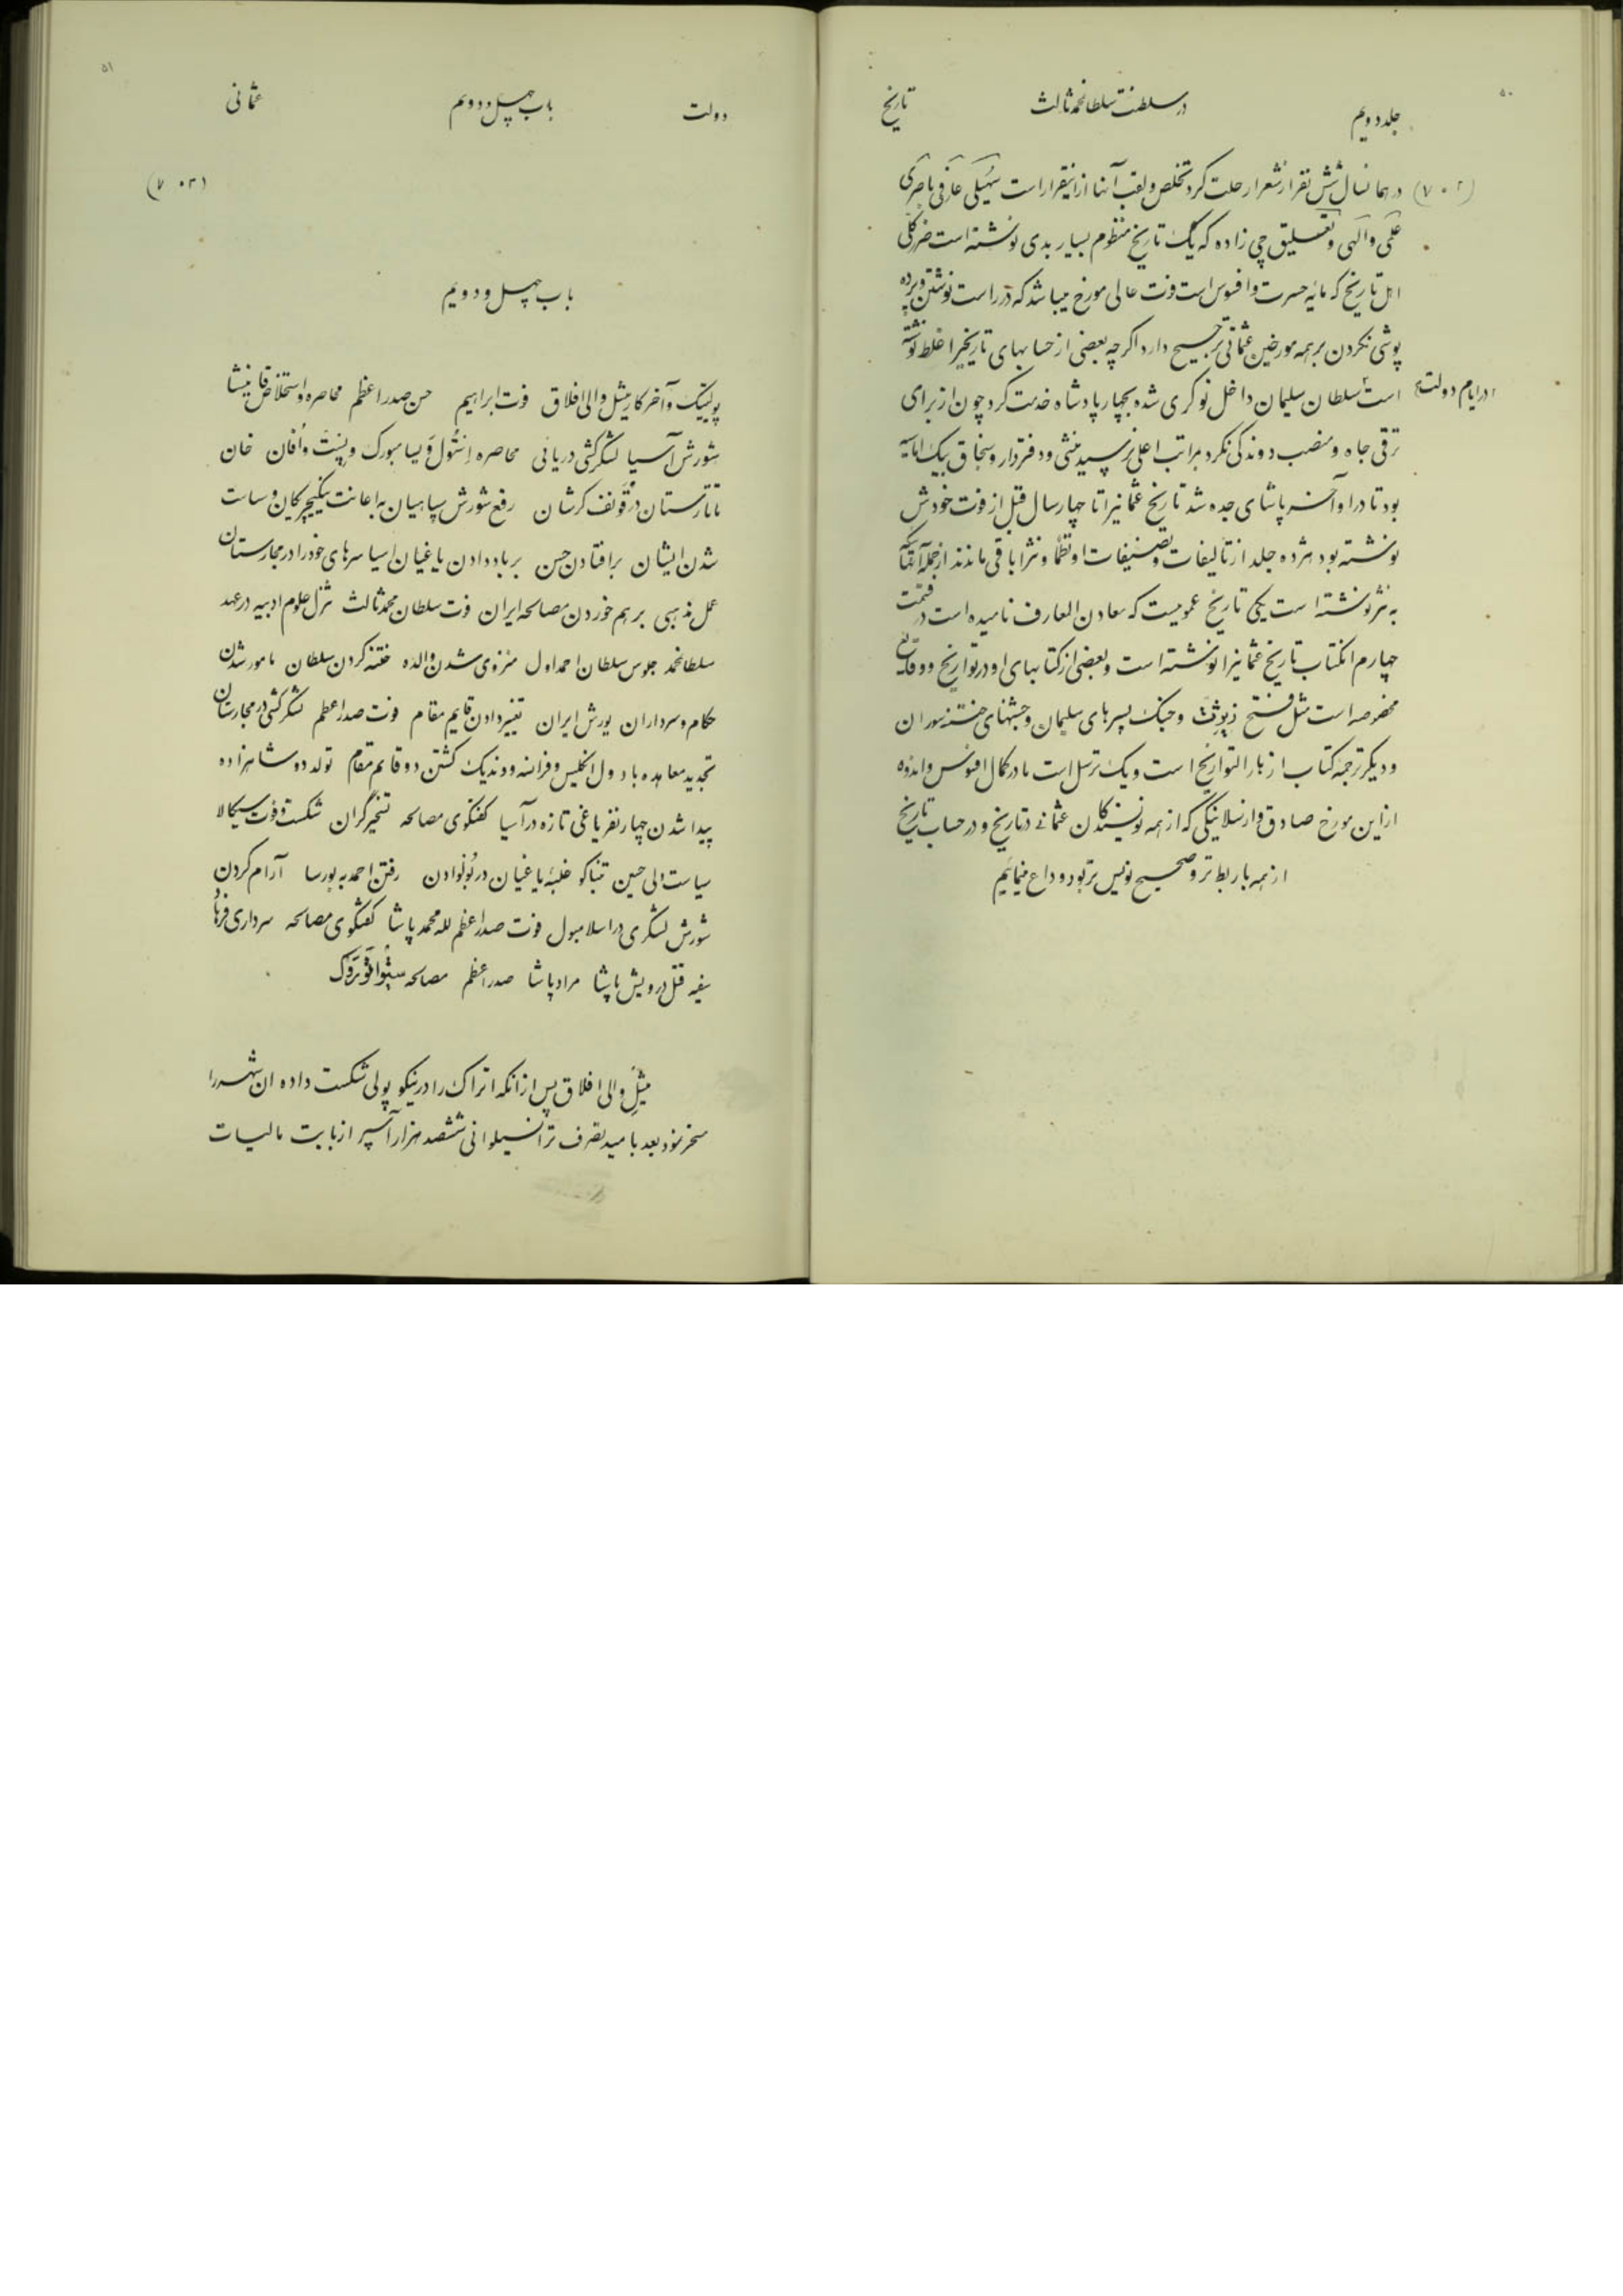 ۵۰
جلد دویم در سلطنت سلطانمحمد ثالث تاریخ
(۷۰۲) در همانسال شش نفر از شعرا رحلت کرد تخلص و لقب آنها از اینقرار است سهیلی عارفی باصری
علمی و آلهی و تعلیق چی زاده که یک تاریخ منظوم بسیار بدی نوشته است ضرر کلی
اهل تاریخ که مایه حسرت و افسوس است فوت عالی مورخ میباشد که در راست نوشتن و پرده
پوشی نکردن بر همه مورخین عثمانی ترجیح دارد اگرچه بعضی از حسابهای تاریخیرا غلط نوشته
است سلطان سلیمان داخل نوکری شده بچهار پادشاه خدمت کرد چون از برای
در ایام دولت
ترقی جاه و منصب دوندگی نکرد بمراتب اعلی نرسید منشی و دفتردار و سنجاق بیک اماسیه
بود تا در اواخر پاشای جده شد تاریخ عثمانیرا تا چهار سال قبل از فوت خودش
نوشته بود هژده جلد از تالیفات و تصنیفات او نظماً و نثرا باقی ماندند از جمله آنهائیکه
به نثر نوشته است یکی تاریخ عمومیست که معادن العارف نامیده است در قسمت
چهارم انکتاب تاریخ عثمانیرا نوشته است و بعضی از کتابهای او در تواریخ و وقایع
مخصوصه است مثل فتح و جنک پسرهای سلیمان و جشنهای ختنه سوران
و دیگر ترجمه کتاب ازهار التواریخ است و یک ترسل است ما در کمال افسوس و اندوه
از این مورخ صادق وارسلانیکی که از همه نویسندگان عثمانی در تاریخ و در حساب تاریخ
از همه با ربط تر و صحیح نویس تر بود وداع مینمائیم
۵۱
دولت باب چهل و دویم عثمانی
(۷۰۳)
باب چهل و دویم
پولیتیک و آخر کار میشل والی افلاق فوت ابراهیم حسن صدراعظم محاصره و استخلاص قانیشا
شورش آسیا لشکرکشی دریائی محاصره استول ویسامبورک و پست و افان خان
تاتارستان در قونف کرشان رفع شورش سپاهیان به اعانت ینکیچریکان و سیاست
شدن ایشان برافتادن حسن برباد دادن یاغیان اسیا سرهای خود را در مجارستان
عمل مذهبی برهم خوردن مصالحه ایران فوت سلطان محمد ثالث تنزل علوم ادبیه در عهد
سلطانمحمد جلوس سلطان احمد اول منزوی شدن والده ختنه کردن سلطان مامور شدن
حکام و سرداران یورش ایران تغییر دادن قایم مقام فوت صدراعظم لشکرکشی در مجارستان
تجدید معاهده با دول انکلیس و فرانسه و وندیک کشتن دو قایم مقام تولد دو شاهزاده
پیدا شدن چهار نفر یاغی تازه در آسیا کفتکوی مصالحه تسخیر گران شکست و فوت سیکالا
سیاست والی حسین تنباکو غلبه یاغیان در بولوادن رفتن احمد به بورسا آرام کردن
شورش لشکری در اسلامبول فوت صدراعظم لله محمد پاشا کفتکوی مصالحه سرداری فرهاد
سفیه قتل درویش پاشا مراد پاشا صدراعظم مصالحه سیتواتوروک
میشل والی افلاق پس از آنکه اتراک را در نیکوپولی شکست داده ان شهر را
مسخر نمود بعد بامید تصرف ترانسیلوانی ششصد هزار آسپر از بابت مالیات